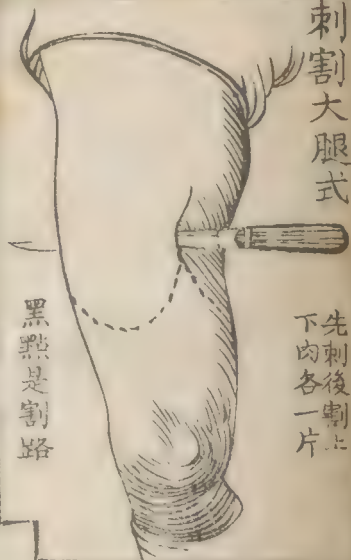 刺割大腿式
先刺後割上
下肉各一片
黑㸃是割路